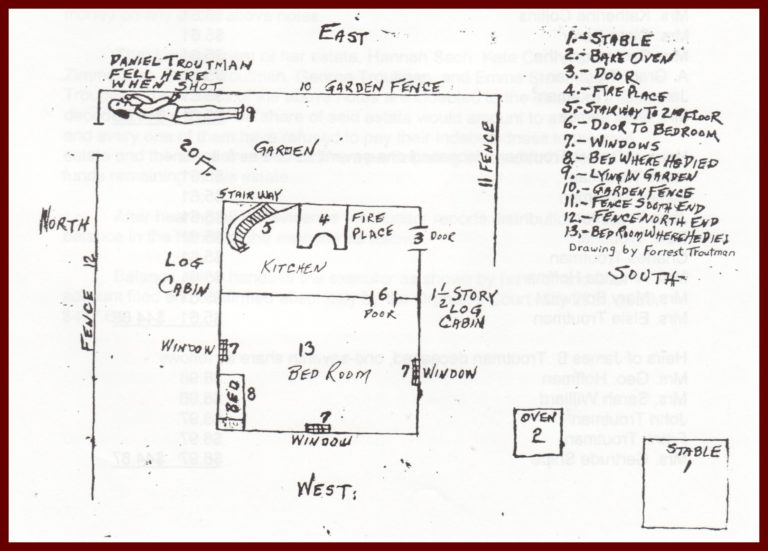 EAST
DANIEL TROUTMAN
FELL HERE
WHEN SHOT
10 GARDEN FENCE
9
GARDEN
2
11 FENCE
STAIRWAY
5
4
FIRE
PLACE
3 DOOR
KITCHEN
NORTH
LOG
CABIN
FENCE 12
6
DOOR
1 1/2 STORY
LOG
CABIN
WINDOW 7
13
BED ROOM
7 WINDOW
BED 8
7
WINDOW
WEST.
OVEN
2
STABLE
1
1.- STABLE
2.- BAKE OVEN
3.- DOOR
4.- FIRE PLACE
5.- STAIRWAY TO 2ND FLOOR
6.- DOOR TO BEDROOM
7.- WINDOWS
8.- BED WHERE HE DIED
9.- LYING IN GARDEN
10.- GARDEN FENCE
11.- FENCE SOUTH END
12.- FENCE NORTH END
13.- BED ROOM WHERE HE DIED
Drawing by Forrest Troutman
SOUTH-
Mrs. Elsie Troutman
Mrs. Geo. Hoffman
John Troutman